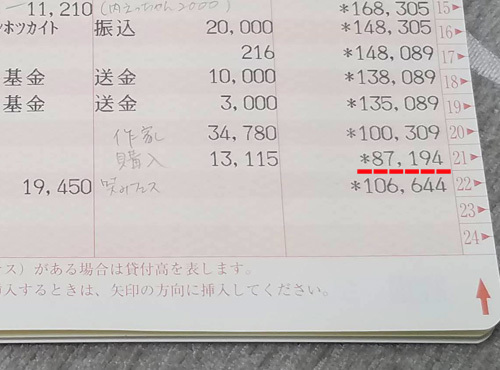 11,210 *168,305 15▶
ンホツカイト 振込 20,000 *148,305 16▶
216 *148,089 17▶
基金 送金 10,000 *138,089 18▶
基金 送金 3,000 *135,089 19▶
作家 34,780 *100,309 20▶
購入 13,115 *87,194 21▶
19,450 *106,644 22▶
23▶
24▶
ス）がある場合は貸付高を表します。
挿入するときは、矢印の方向に挿入してください。